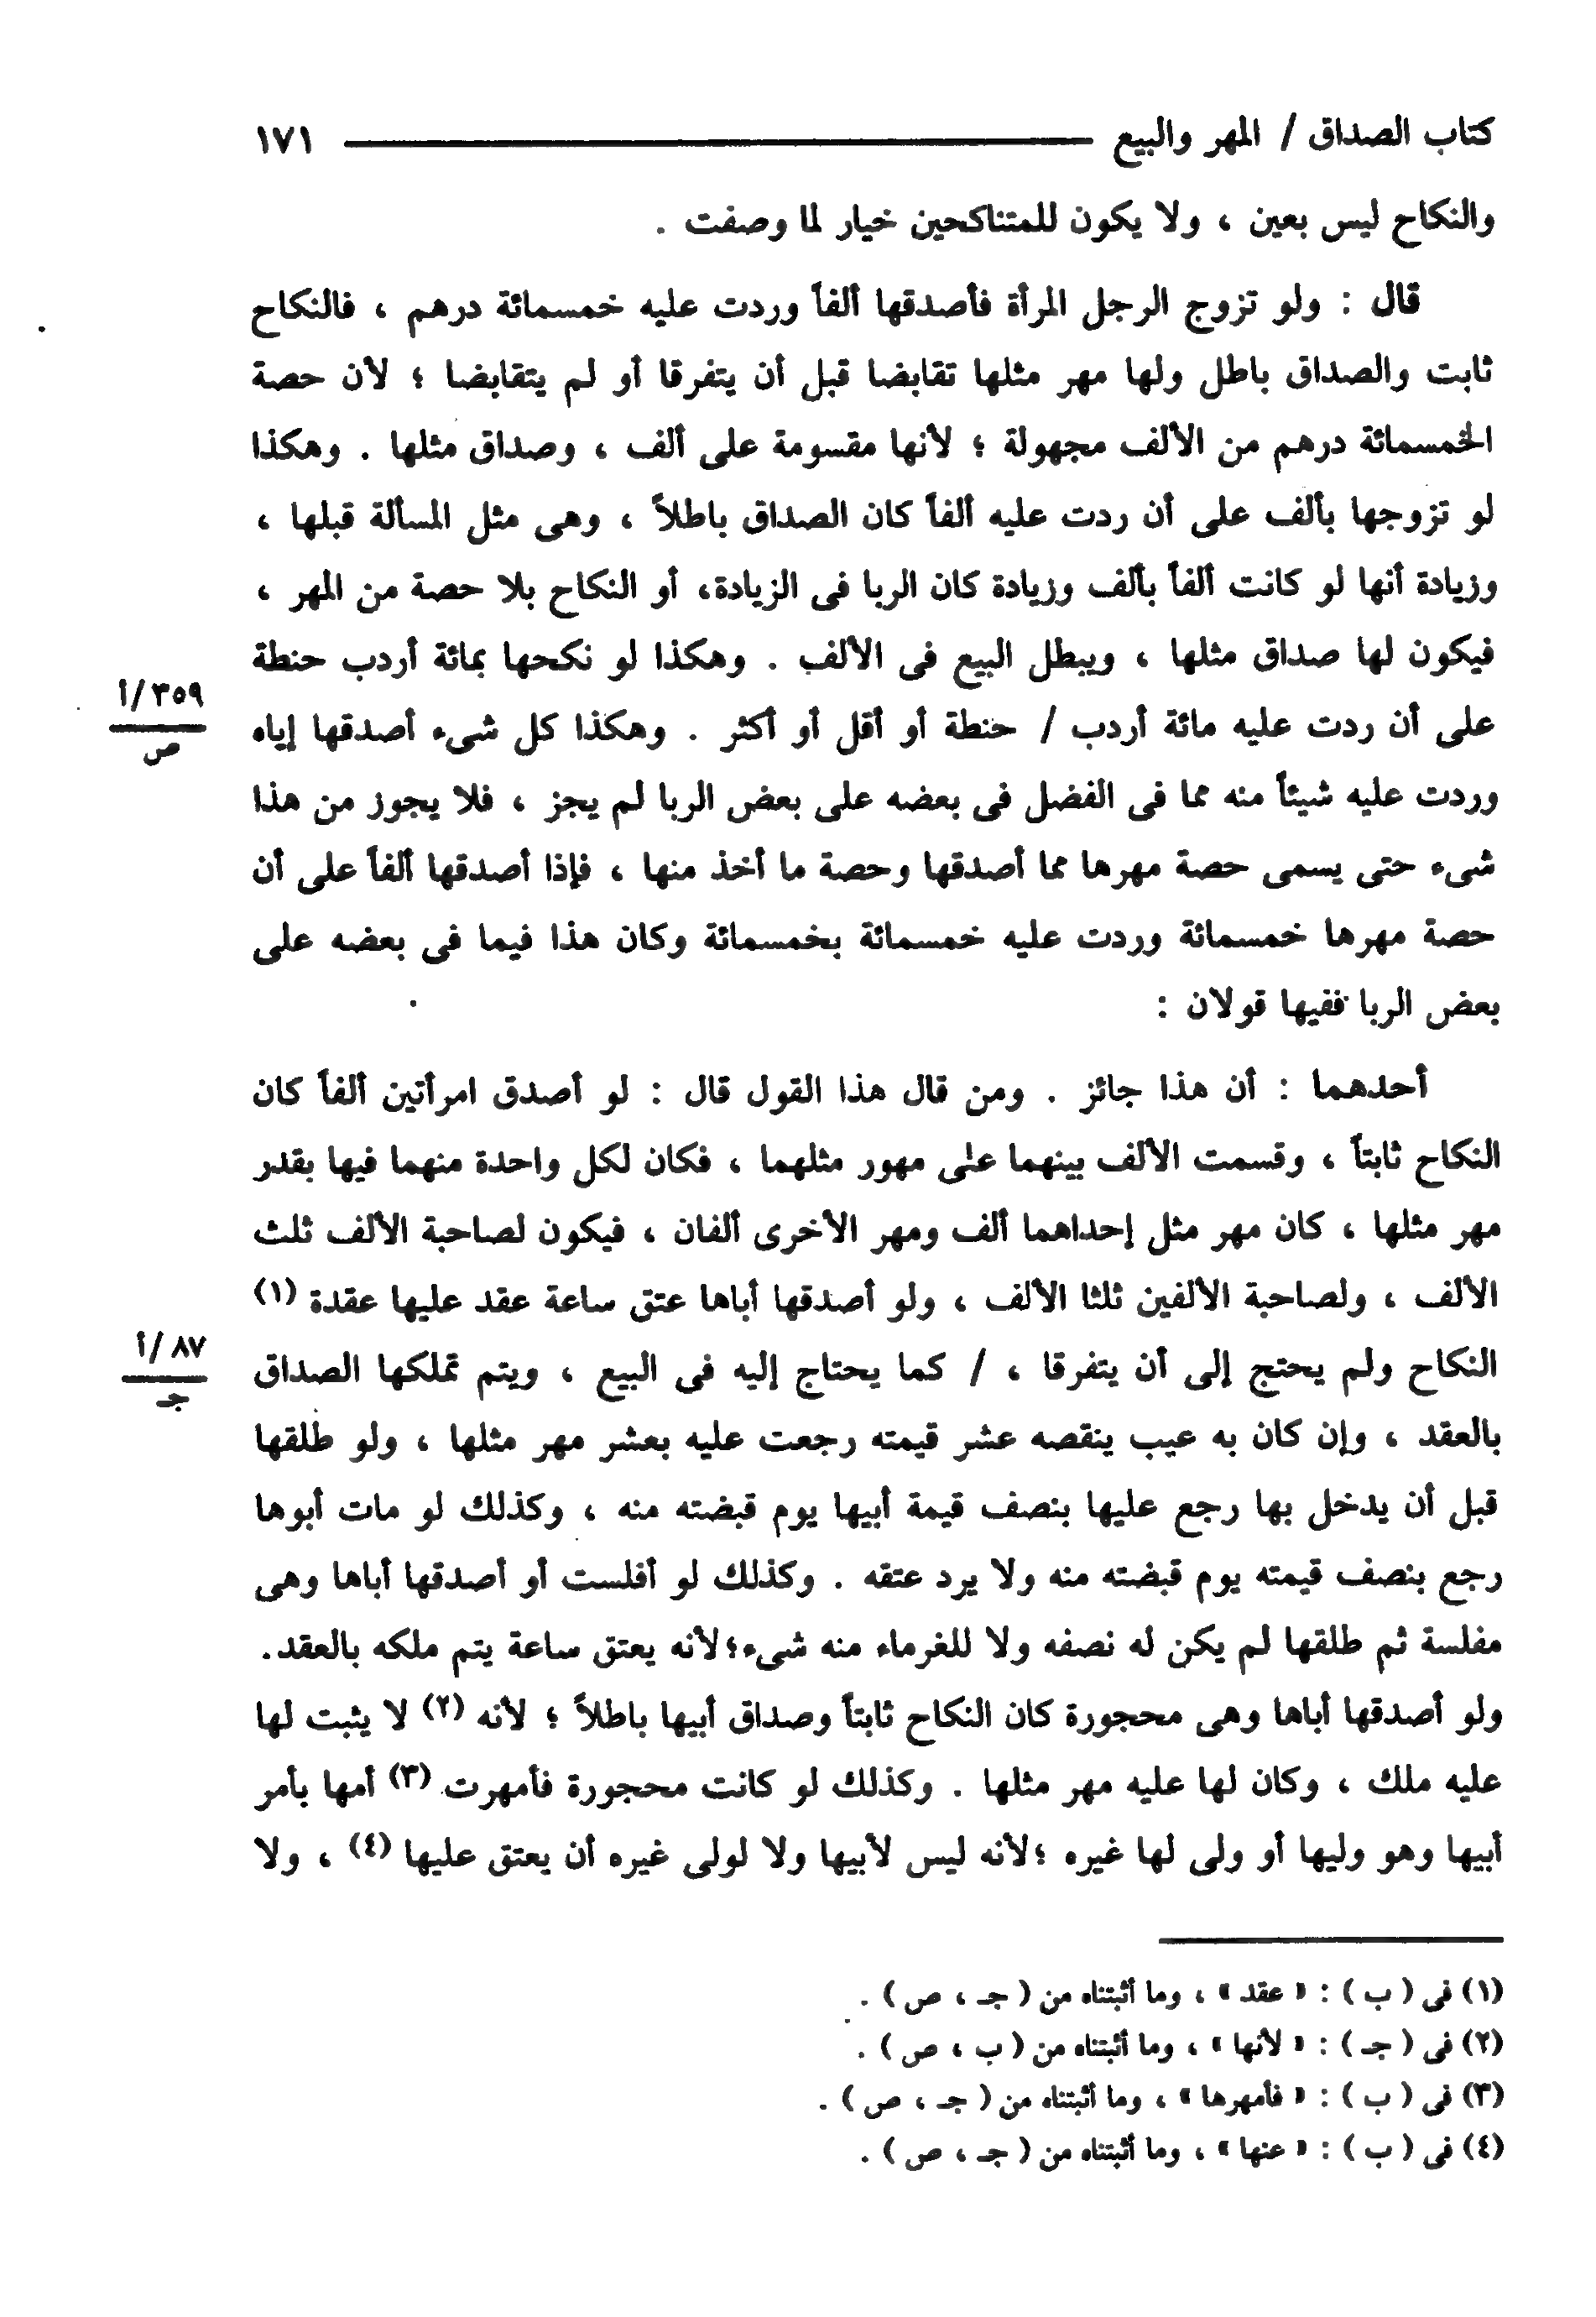 كتاب الصداق / المهر والبيع ١٧١
والنكاح ليس بعين ، ولا يكون للمتناكحين خيار لما وصفت .
قال : ولو تزوج الرجل المرأة فأصدقها ألفاً وردت عليه خمسمائة درهم ، فالنكاح
ثابت والصداق باطل ولها مهر مثلها تقابضا قبل أن يتفرقا أو لم يتقابضا ؛ لأن حصة
الخمسمائة درهم من الألف مجهولة ؛ لأنها مقسومة على ألف ، وصداق مثلها . وهكذا
لو تزوجها بألف على أن ردت عليه ألفاً كان الصداق باطلاً ، وهى مثل المسألة قبلها ،
وزيادة أنها لو كانت ألفاً بألف وزيادة كان الربا فى الزيادة، أو النكاح بلا حصة من المهر ،
فيكون لها صداق مثلها ، ويبطل البيع فى الألف . وهكذا لو نكحها بمائة أردب حنطة
على أن ردت عليه مائة أردب / حنطة أو أقل أو أكثر . وهكذا كل شىء أصدقها إياه
٣٥٩/أ
ص
وردت عليه شيئاً منه مما فى الفضل فى بعضه على بعض الربا لم يجز ، فلا يجوز من هذا
شىء حتى يسمى حصة مهرها مما أصدقها وحصة ما أخذ منها ، فإذا أصدقها ألفاً على أن
حصة مهرها خمسمائة وردت عليه خمسمائة بخمسمائة وكان هذا فيما فى بعضه على
بعض الربا ففيها قولان :
أحدهما : أن هذا جائز . ومن قال هذا القول قال : لو أصدق امرأتين ألفاً كان
النكاح ثابتاً ، وقسمت الألف بينهما على مهور مثلهما ، فكان لكل واحدة منهما فيها بقدر
مهر مثلها ، كان مهر مثل إحداهما ألف ومهر الأخرى ألفان ، فيكون لصاحبة الألف ثلث
الألف ، ولصاحبة الألفين ثلثا الألف ، ولو أصدقها أباها عتق ساعة عقد عليها عقدة (١)
النكاح ولم يحتج إلى أن يتفرقا ، / كما يحتاج إليه فى البيع ، ويتم تملكها الصداق
٨٧/أ
جـ
بالعقد ، وإن كان به عيب ينقصه عشر قيمته رجعت عليه بعشر مهر مثلها ، ولو طلقها
قبل أن يدخل بها رجع عليها بنصف قيمة أبيها يوم قبضته منه ، وكذلك لو مات أبوها
رجع بنصف قيمته يوم قبضته منه ولا يرد عتقه . وكذلك لو أفلست أو أصدقها أباها وهى
مفلسة ثم طلقها لم يكن له نصفه ولا للغرماء منه شىء؛لأنه يعتق ساعة يتم ملكه بالعقد.
ولو أصدقها أباها وهى محجورة كان النكاح ثابتاً وصداق أبيها باطلاً ؛ لأنه (٢) لا يثبت لها
عليه ملك ، وكان لها عليه مهر مثلها . وكذلك لو كانت محجورة فأمهرت (٣) أمها بأمر
أبيها وهو وليها أو ولى لها غيره ؛لأنه ليس لأبيها ولا لولى غيره أن يعتق عليها (٤) ، ولا
(١) فى ( ب ) : « عقد » ، وما أثبتناه من ( جـ ، ص ) .
(٢) فى ( جـ ) : « لأنها » ، وما أثبتناه من ( ب ، ص ) .
(٣) فى ( ب ) : « فأمهرها » ، وما أثبتناه من ( جـ ، ص ) .
(٤) فى ( ب ) : « عنها » ، وما أثبتناه من ( جـ ، ص ) .